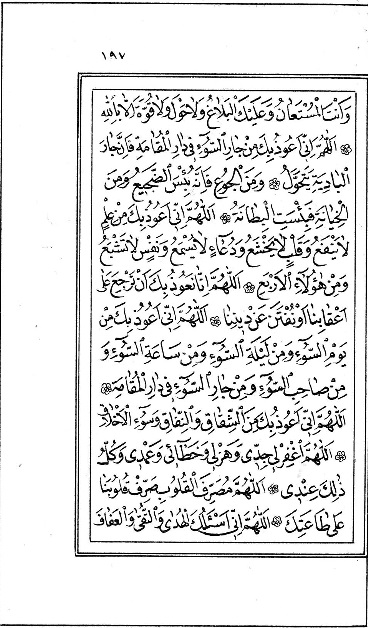 ١٩٧
وَاَنْتَ الْمُسْتَعَانُ وَعَلَيْكَ الْبَلَاغُ وَلَا حَوْلَ وَلَا قُوَّةَ اِلَّا بِاللّٰهِ
۞ اَللّٰهُمَّ اِنِّي اَعُوذُ بِكَ مِنْ جَارِ السُّوٓءِ فِي دَارِ الْمُقَامَةِ فَاِنَّ جَارَ
الْبَادِيَةِ يَتَحَوَّلُ ۞ وَمِنَ الْجُوعِ فَاِنَّهُ بِئْسَ الضَّجِيعُ وَمِنَ
الْخِيَانَةِ فَبِئْسَتِ الْبِطَانَةُ ۞ اَللّٰهُمَّ اِنِّي اَعُوذُ بِكَ مِنْ عِلْمٍ
لَا يَنْفَعُ وَقَلْبٍ لَا يَخْشَعُ وَدُعَاءٍ لَا يُسْمَعُ وَنَفْسٍ لَا تَشْبَعُ
وَمِنْ هٰؤُلَاءِ الْاَرْبَعِ ۞ اَللّٰهُمَّ اِنَّا نَعُوذُ بِكَ اَنْ نَرْجِعَ عَلٰى
اَعْقَابِنَا اَوْ نُفْتَنَ عَنْ دِينِنَا ۞ اَللّٰهُمَّ اِنِّي اَعُوذُ بِكَ مِنْ
يَوْمِ السُّوٓءِ وَمِنْ لَيْلَةِ السُّوٓءِ وَمِنْ سَاعَةِ السُّوٓءِ وَ
مِنْ صَاحِبِ السُّوٓءِ وَمِنْ جَارِ السُّوٓءِ فِي دَارِ الْمُقَامَةِ ۞
اَللّٰهُمَّ اِنِّي اَعُوذُ بِكَ مِنَ الشِّقَاقِ وَالنِّفَاقِ وَسُوٓءِ الْاَخْلَاقِ
۞ اَللّٰهُمَّ اغْفِرْ لِي جِدِّي وَهَزْلِي وَخَطَائِي وَعَمْدِي وَكُلُّ
ذٰلِكَ عِنْدِي ۞ اَللّٰهُمَّ مُصَرِّفَ الْقُلُوبِ صَرِّفْ قُلُوبَنَا
عَلٰى طَاعَتِكَ ۞ اَللّٰهُمَّ اِنِّي اَسْئَلُكَ الْهُدٰى وَالتُّقٰى وَالْعَفَافَ